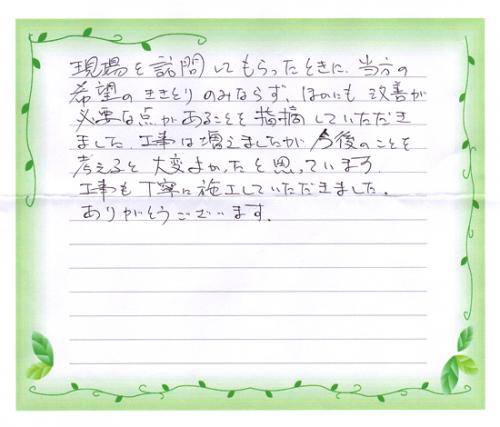 現場を訪問してもらったときに、当方の
希望のききとりのみならず、ほかにも改善が
必要な点があることを指摘していただき
ました。工事は増えましたが今後のことを
考えると大変よかったと思っています。
工事も丁寧に施工していただきました。
ありがとうございます。